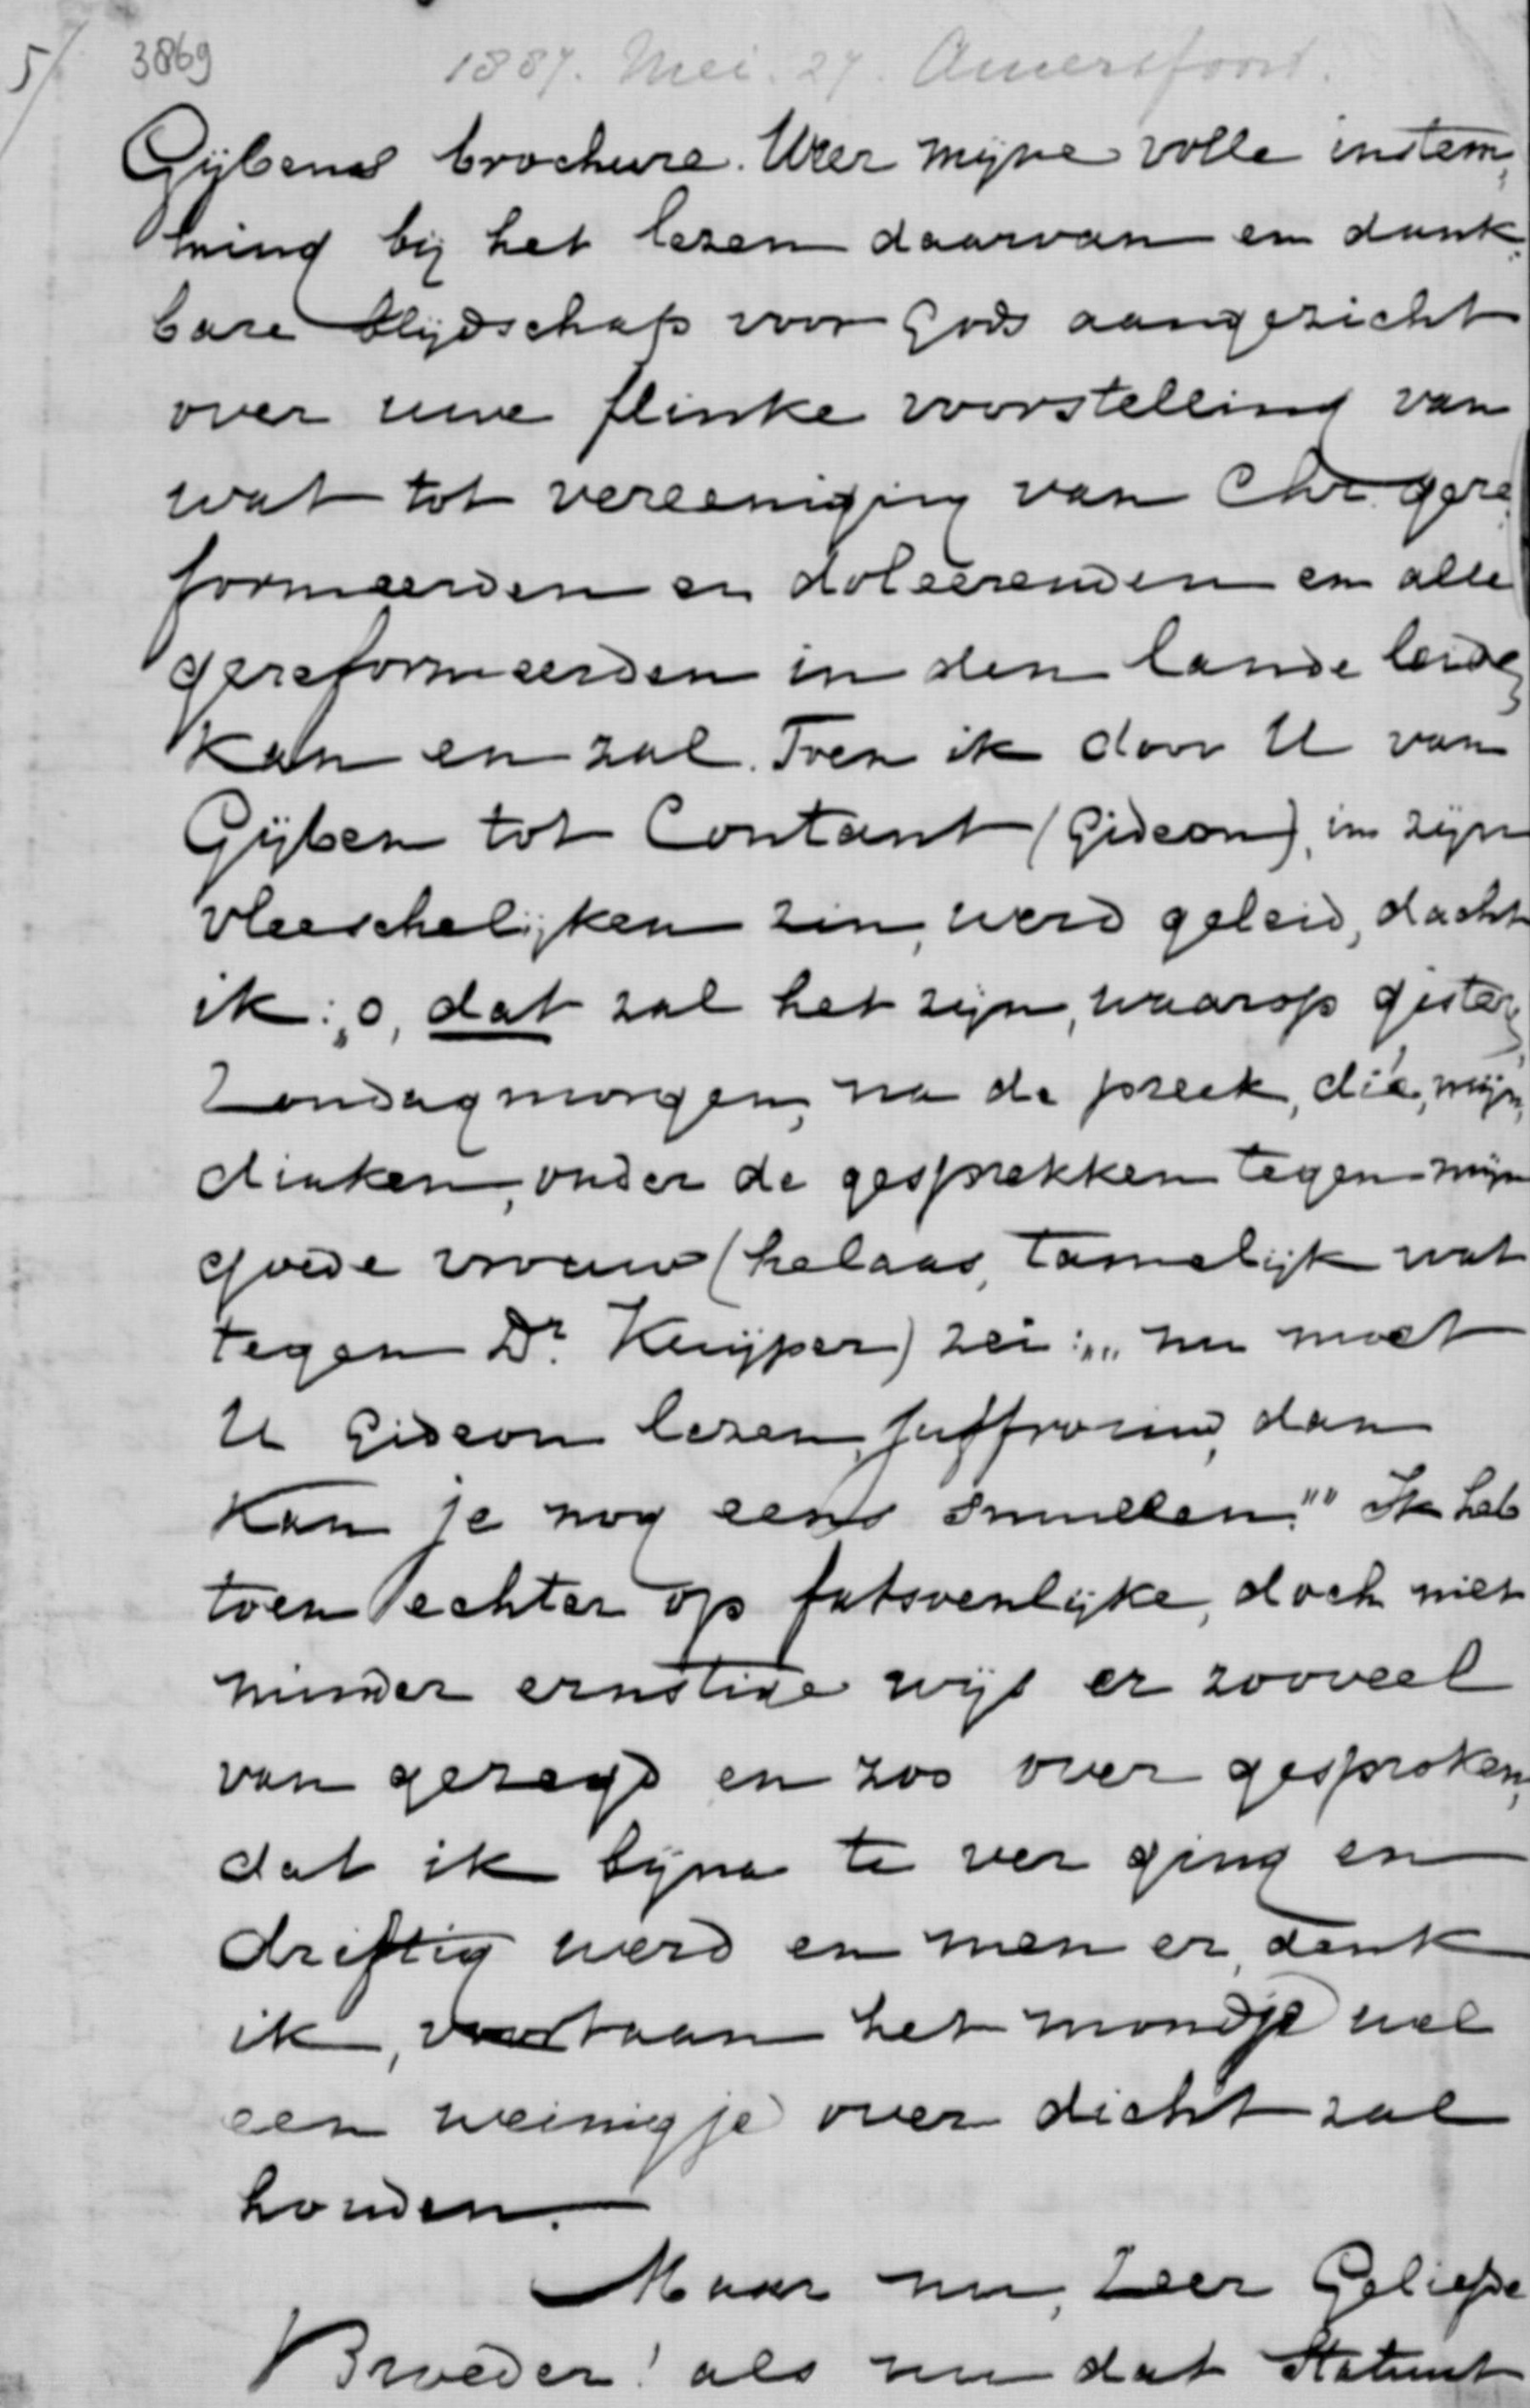 5/ 3869 1887. Mei. 27. Amersfoort.
Gijbens brochure. Weer mijne volle instem,
ming bij het lezen daarvan en dank,
bare blijdschap voor Gods aangezicht
over uwe flinke voorstelling van
wat tot vereeniging van Chr. gere,
formeerden en doleerenden en alle
gereformeerden in den lande leiden
kan en zal. Toen ik door U van
Gijben tot Contant (Gideon), in zijn
vleeschelijken zin, werd geleid, dacht
ik: „o, dat zal het zijn, waarop gister,
Zondagmorgen, na de preek, die, mijn,
dinken, onder de gesprekken tegen mijn
goede vrouw (helaas, tamelijk wat
tegen Dr. Kuijper) zei: „„nu moet
U Gideon lezen, Juffrouw, dan
kan je nog eens smullen."" Ik heb
toen echter op fatsoenlijke, doch niet
minder ernstige wijs er zooveel
van gezegd en zoo over gesproken,
dat ik bijna te ver ging en
driftig werd en men er, denk
ik, voortaan het mondje wel
een weinigje over dicht zal
houden.
Maar nu, Zeer Geliefde
Broeder! als nu dat Statuut